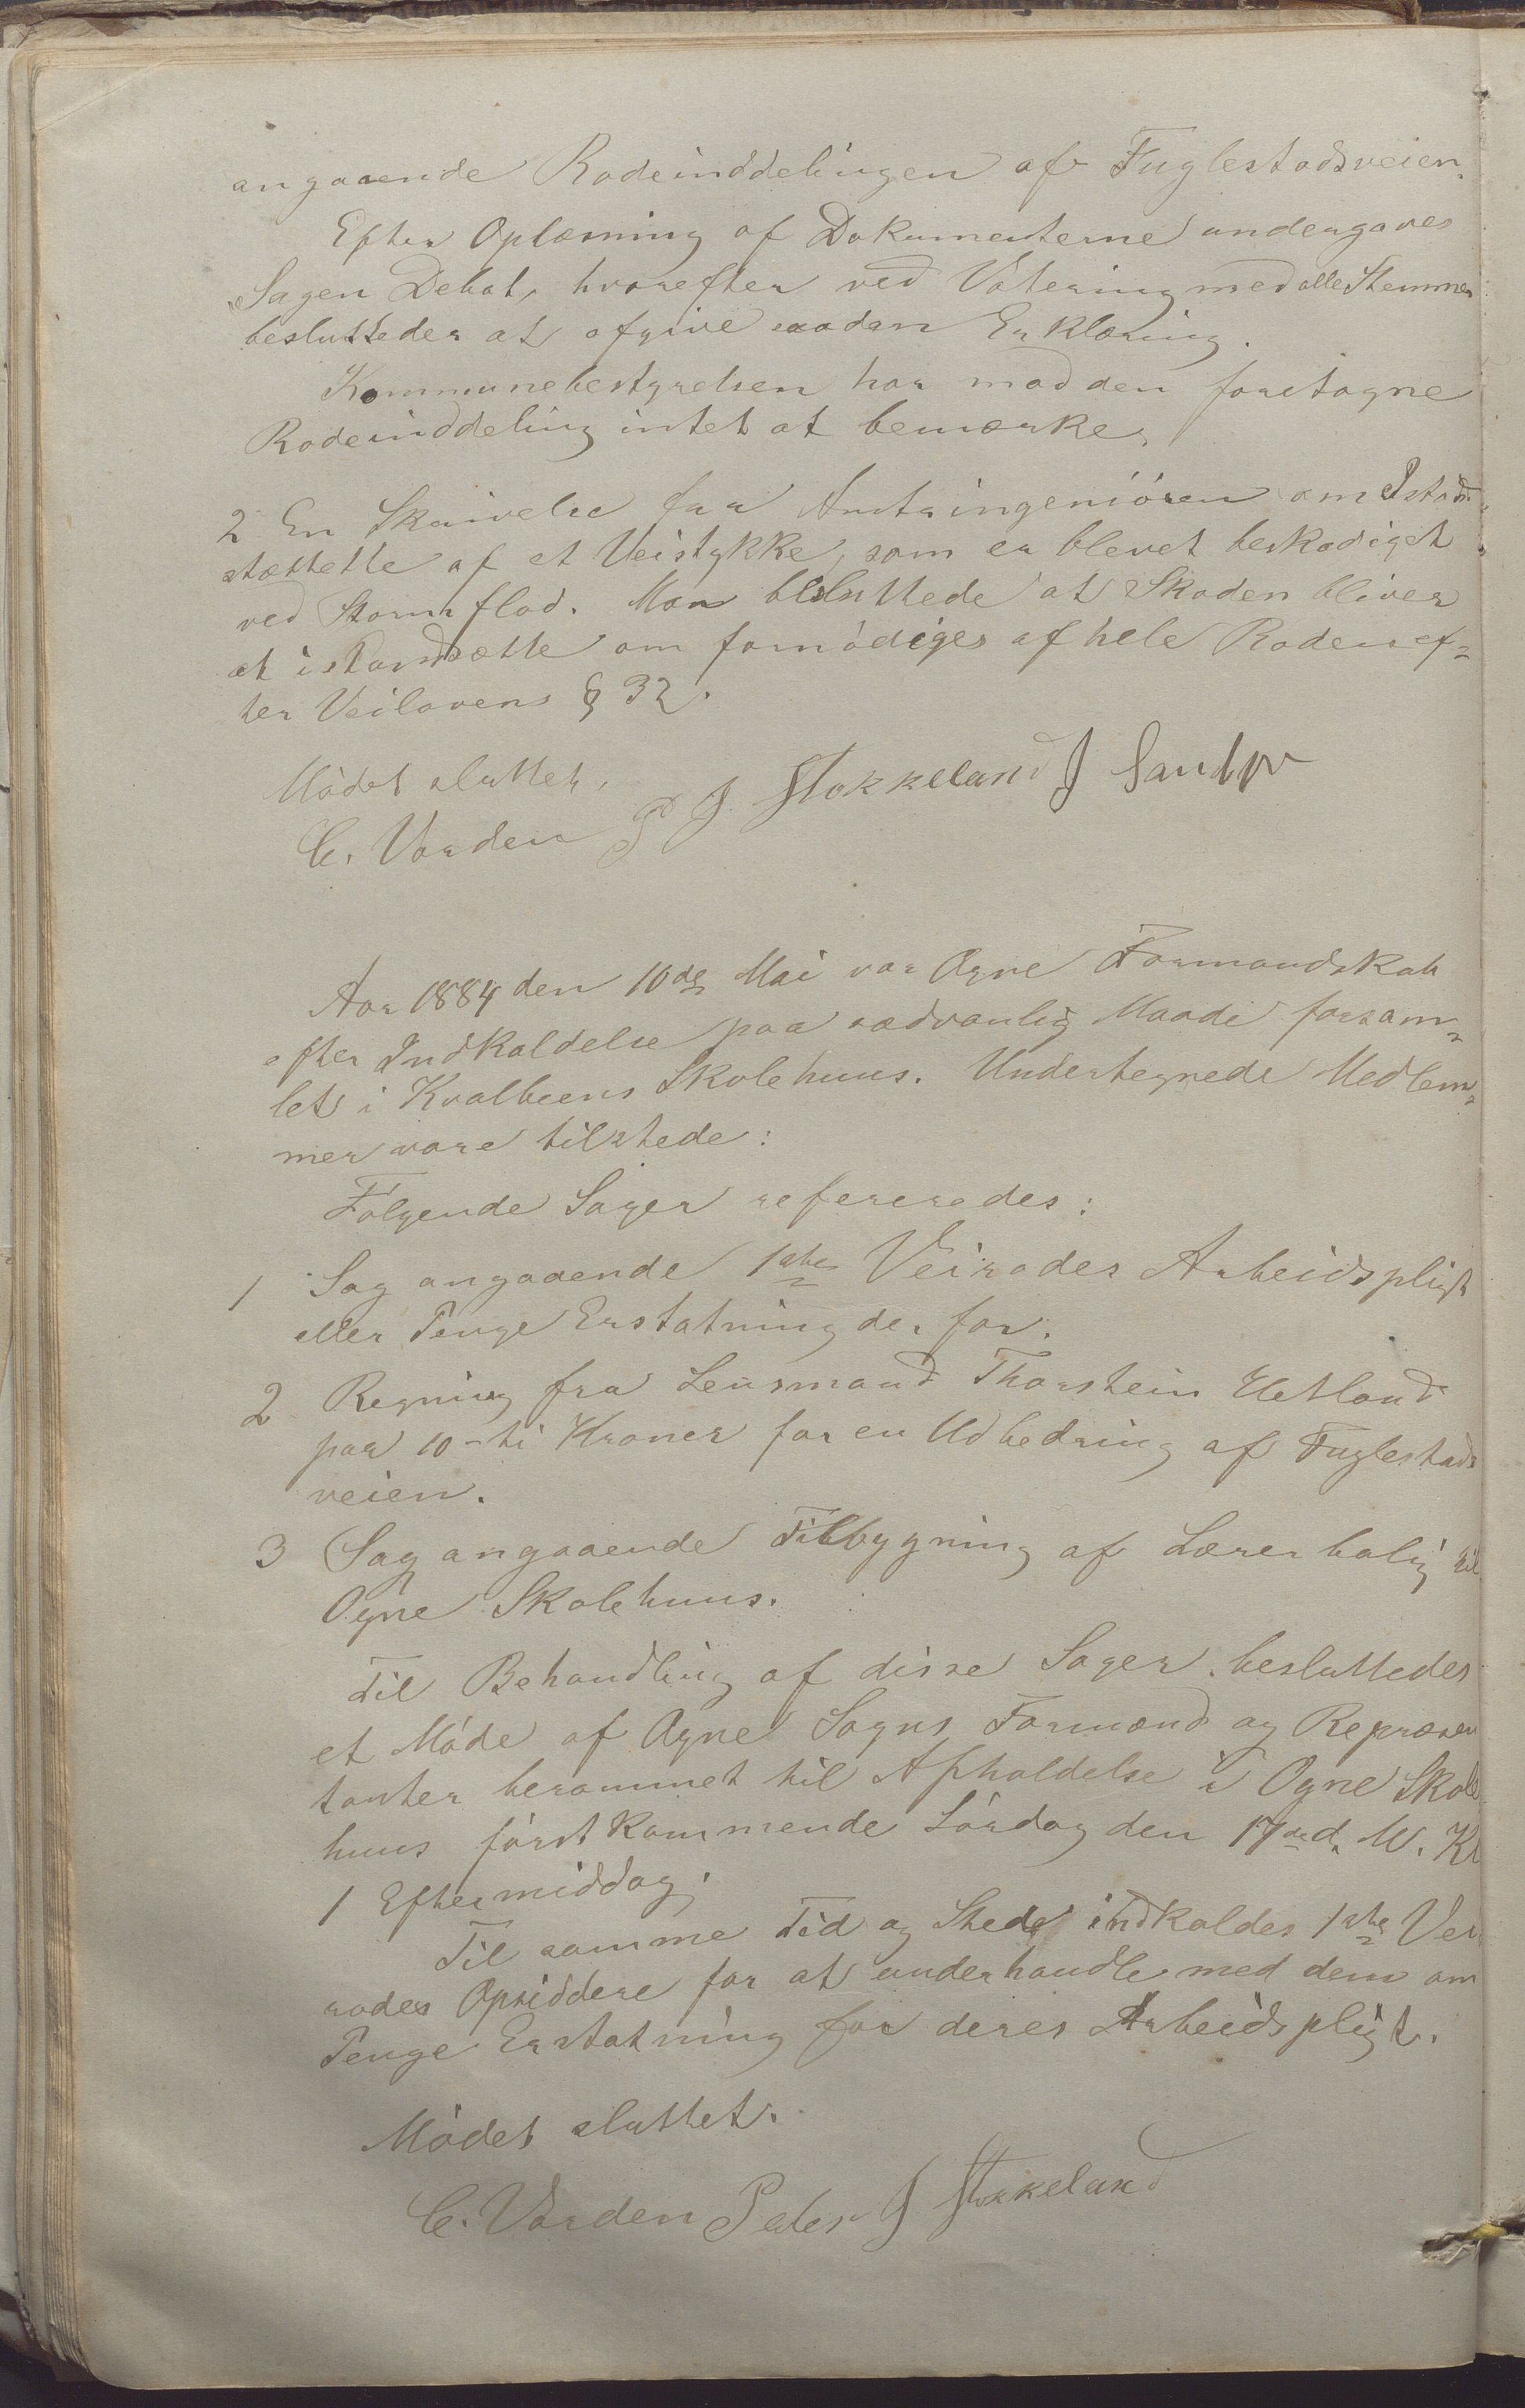 angaaende Rodeinddelingen af Fuglestadsveien.
Efter Oplæsning af Dokumenterne undergaves
Sagen Debat, hvorefter ved Votering med alle Stemmer
besluttedes at afgive saadan Erklæring.
Kommunebestyrelsen har mod den foretagne
Rodeinddeling intet at bemærke.
2 En Skrivelse fra Amtsingeniøren om
af et Veistykke, som er blevet beskadiget
ved Stormflod. Man besluttede at Skaden bliver
at istandsætte om fornødiges af hele Roden ef-
ter Veilovens § 32.
Mødet sluttet.
C. Varden P J Stokkeland J Sandve
Aar 1884 den 10de Mai var Ogne Formandskab
efter Indkaldelse paa sædvanlig Maade forsam-
let i Kvalbeens Skolehuus. Undertegnede Medlem-
mer vare tilstede:
Følgende Sager refereredes:
1 Sag angaaende 1ste Veirodes Arbeidspligt
eller Penge Erstatning der for.
2 Regning fra Lensmand Thorstein Hetland
paa 10-ti Kroner for en Udbedring af Fuglestads
veien.
3 Sag angaaende Tilbygning af Lærerbolig til
Ogne Skolehuus.
Til Behandling af disse Sager besluttedes
et Møde af Ogne Sogns Formænd og Repræsen
tanter berammet til Afholdelse i Ogne Skole
huus førstkommende Lørdag den 17de d. M. Kl
1 Eftermiddag.
Til samme Tid og Sted indkaldes 1ste Vei
rodes Opsiddere for at underhandle med dem om
Penge Erstatning for deres Arbeidspligt.
Mødet sluttet.
C. Varden Peder J Stokkeland